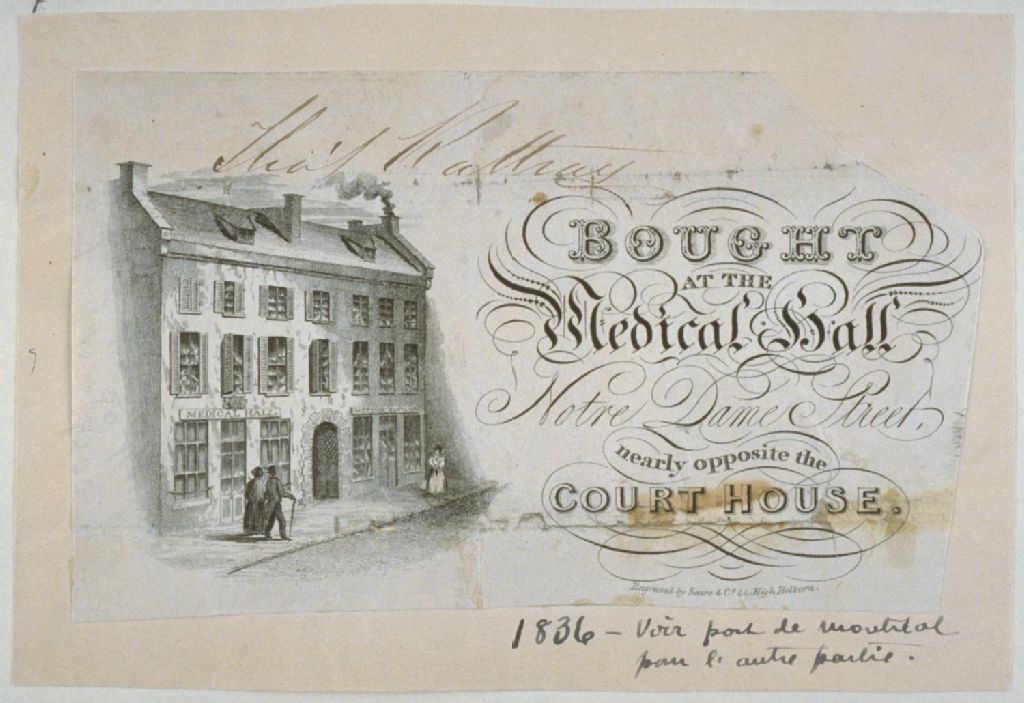 Tho's Rattray
BOUGHT
AT THE
Medical Hall
Notre Dame Street,
nearly opposite the
COURT HOUSE.
MEDICAL HALL
Engraved by Seare & Co. 44, High Holborn.
1836 - Voir port de montréal
pour l'autre partie.